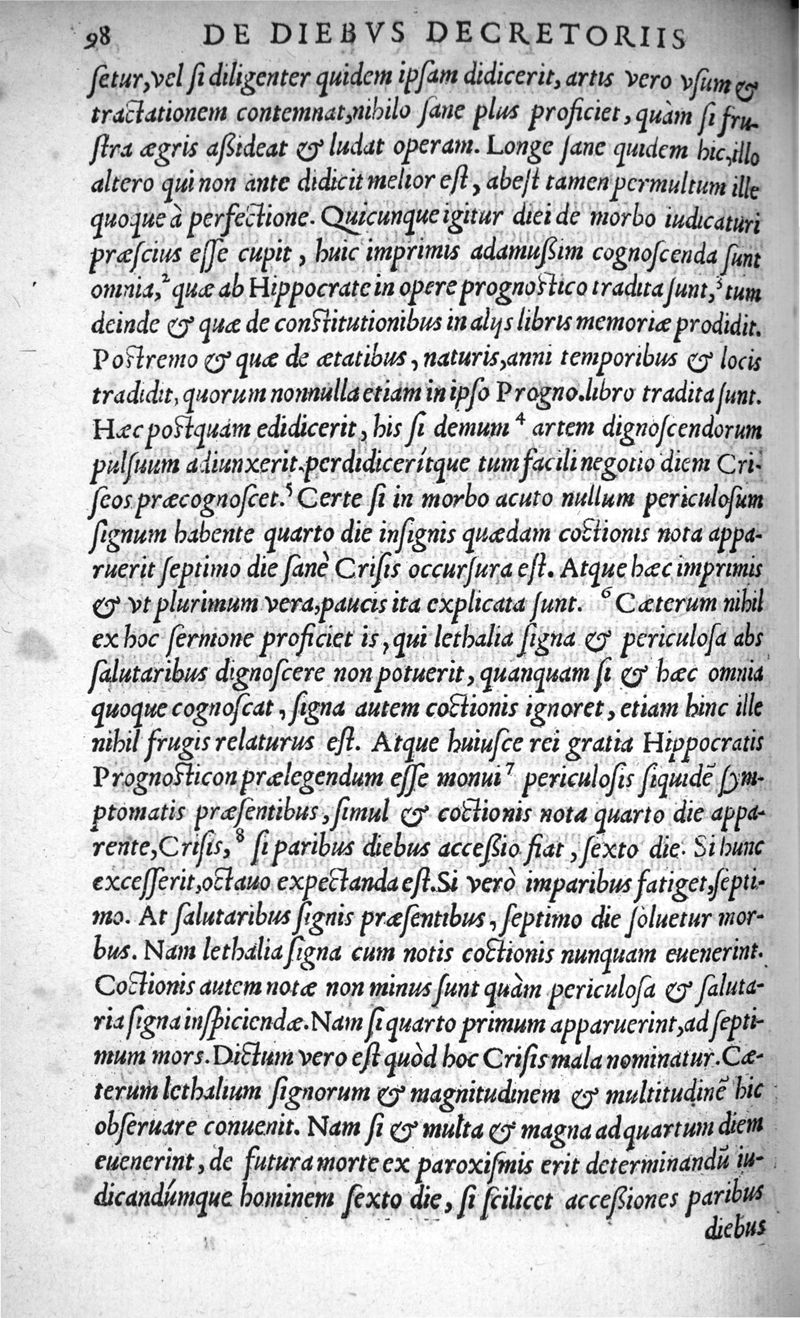 98 DE DIEBVS DECRETORIIS
ſetur, vel ſi diligenter quidem ipſam didicerit, artis vero vſum &
tractationem contemnat, nihilo ſane plus proficiet, quàm ſi fru-
ſtra ægris aßideat & ludat operam. Longe ſane quidem hic, illo
altero qui non ante didicit melior eſt, abeſt tamen permultum ille
quoque à perfectione. Quicunque igitur diei de morbo iudicaturi
præſcius eſſe cupit, huic imprimis adamußim cognoſcenda ſunt
omnia,² quæ ab Hippocrate in opere prognoſtico tradita ſunt,³ tum
deinde & quæ de conſtitutionibus in alijs libris memoriæ prodidit.
Poſtremo & quæ de ætatibus, naturis, anni temporibus & locis
tradidit, quorum nonnulla etiam in ipſo Progno. libro tradita ſunt.
Hæc poſtquam edidicerit, his ſi demum ⁴ artem dignoſcendorum
pulſuum adiunxerit. perdidicerítque tum facili negotio diem Cri-
ſeos præcognoſcet.⁵ Certe ſi in morbo acuto nullum periculoſum
ſignum habente quarto die inſignis quædam coctionis nota appa-
ruerit ſeptimo die ſanè Criſis occurſura eſt. Atque hæc imprimis
& vt plurimum vera, paucis ita explicata ſunt. ⁶ Cæterum nihil
ex hoc ſermone proficiet is, qui lethalia ſigna & periculoſa abs
ſalutaribus dignoſcere non potuerit, quanquam ſi & hæc omnia
quoque cognoſcat, ſigna autem coctionis ignoret, etiam hinc ille
nihil frugis relaturus eſt. Atque huiuſce rei gratia Hippocratis
Prognoſticon prælegendum eſſe monui ⁷ periculoſis ſiquidē ſym-
ptomatis præſentibus, ſimul & coctionis nota quarto die appa-
rente, Criſis, ⁸ ſi paribus diebus acceßio fiat, ſexto die. Si hunc
exceſſerit, octauo expectanda eſt. Si verò imparibus fatiget, ſepti-
mo. At ſalutaribus ſignis præſentibus, ſeptimo die ſoluetur mor-
bus. Nam lethalia ſigna cum notis coctionis nunquam euenerint.
Coctionis autem notæ non minus ſunt quàm periculoſa & ſaluta-
ria ſigna inſpiciendæ. Nam ſi quarto primum apparuerint, ad ſepti-
mum mors. Dictum vero eſt quòd hoc Criſis mala nominatur. Cæ-
terum lethalium ſignorum & magnitudinem & multitudinē hic
obſeruare conuenit. Nam ſi & multa & magna ad quartum diem
euenerint, de futura morte ex paroxiſmis erit determinandū iu-
dicandúmque hominem ſexto die, ſi ſcilicet acceßiones paribus
diebus